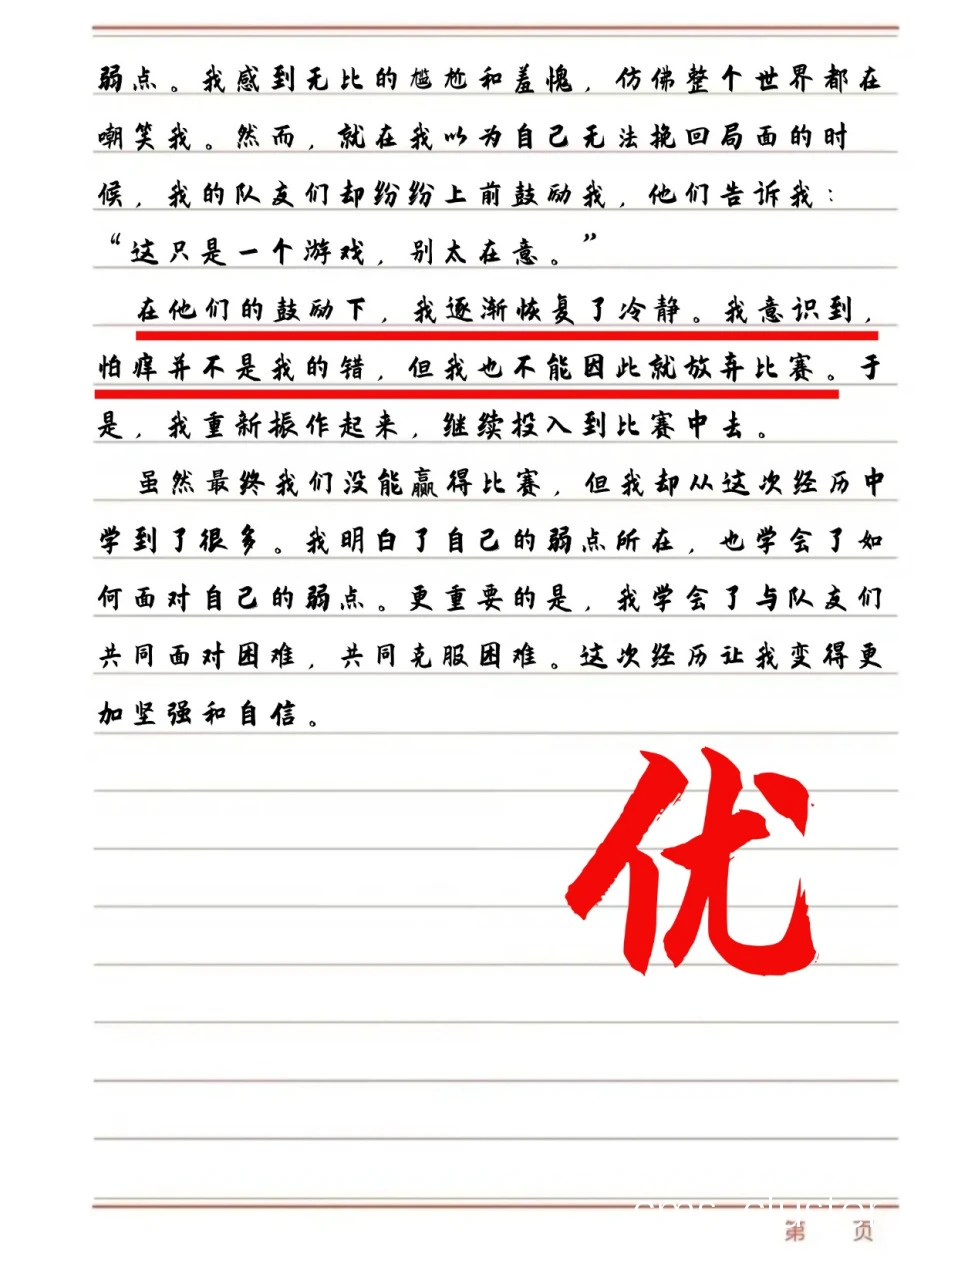 弱点。我感到无比的尴尬和羞愧，仿佛整个世界都在
嘲笑我。然而，就在我以为自己无法挽回局面的时
候，我的队友们却纷纷上前鼓励我，他们告诉我：
“这只是一个游戏，别太在意。”
在他们的鼓励下，我逐渐恢复了冷静。我意识到，
怕痒并不是我的错，但我也不能因此就放弃比赛。于
是，我重新振作起来，继续投入到比赛中去。
虽然最终我们没能赢得比赛，但我却从这次经历中
学到了很多。我明白了自己的弱点所在，也学会了如
何面对自己的弱点。更重要的是，我学会了与队友们
共同面对困难，共同克服困难。这次经历让我变得更
加坚强和自信。
优
第 页